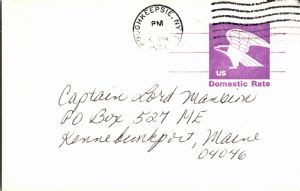 POUGHKEEPSIE, NY
PM
US
Domestic Rate
Captain Lord Mansion
PO Box 527 ME
Kennebunkport, Maine
04046